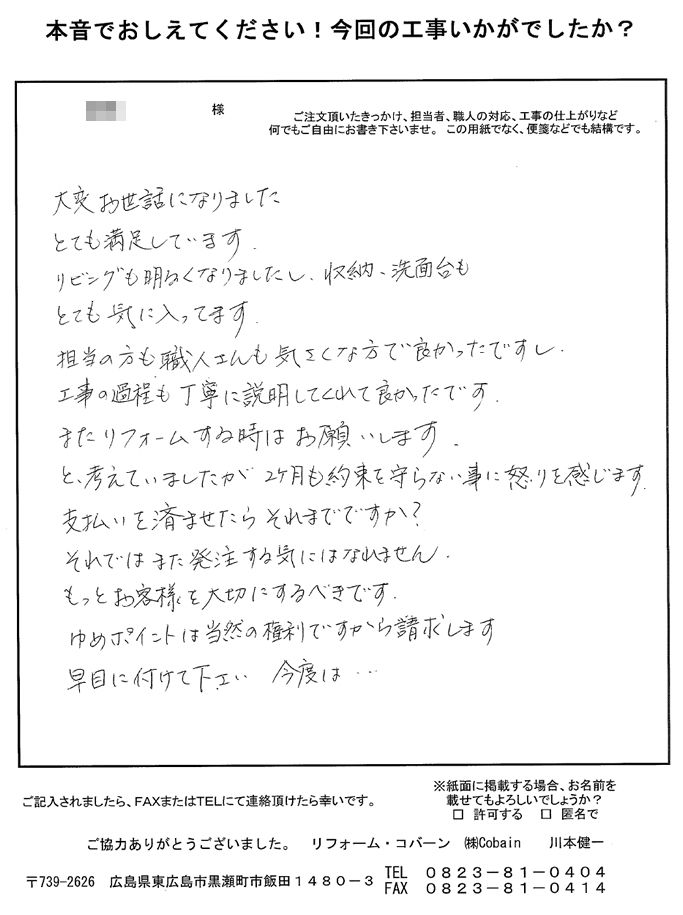 本音でおしえてください！今回の工事いかがでしたか？
様
ご注文頂いたきっかけ、担当者、職人の対応、工事の仕上がりなど
何でもご自由にお書き下さいませ。この用紙でなく、便箋などでも結構です。
大変お世話になりました
とても満足しています.
リビングも明るくなりましたし、収納、洗面台も
とても気に入ってます.
担当の方も職人さんも気さくな方で良かったですし.
工事の過程も丁寧に説明してくれて良かったです.
またリフォームする時はお願いします.
と、考えていましたが 2ケ月も約束を守らない事に怒りを感じます.
支払いを済ませたらそれまでですか?
それではまた発注する気にはなれません.
もっとお客様を大切にするべきです.
ゆめポイントは当然の権利ですから請求します
早目に付けて下さい 今度は…
ご記入されましたら、FAXまたはTELにて連絡頂けたら幸いです。
※紙面に掲載する場合、お名前を
載せてもよろしいでしょうか？
□ 許可する □ 匿名で
ご協力ありがとうございました。 リフォーム・コバーン ㈱Cobain 川本健一
〒739-2626 広島県東広島市黒瀬町市飯田１４８０－３
TEL ０８２３－８１－０４０４
FAX ０８２３－８１－０４１４